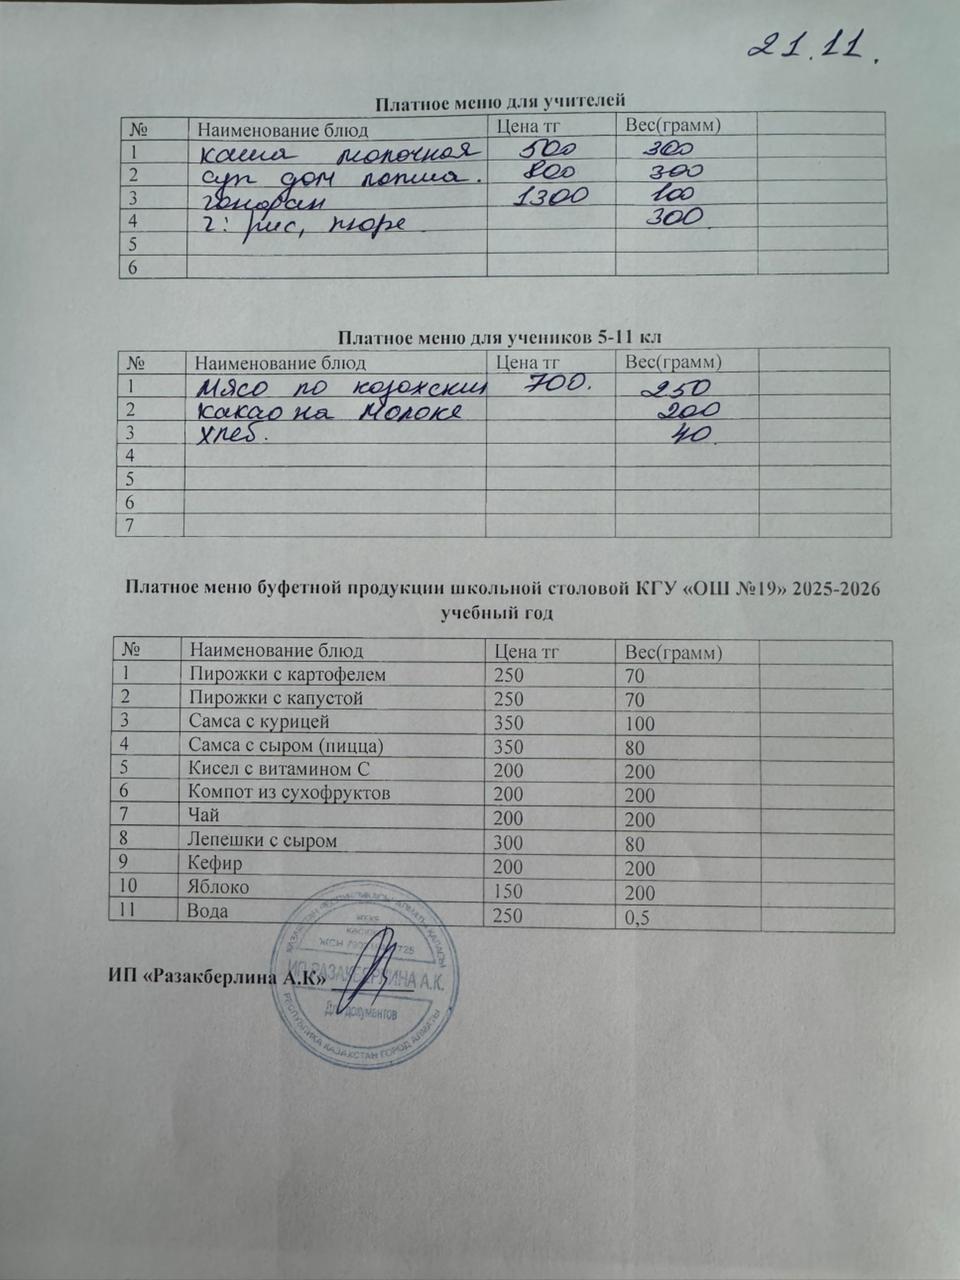 21.11.
Платное меню для учителей
№ Наименование блюд Цена тг Вес(грамм)
1 каша молочная 500 300
2 суп дом лапша. 800 300
3 1300 100
4 г: рис, пюре 300
5
6
Платное меню для учеников 5-11 кл
№ Наименование блюд Цена тг Вес(грамм)
1 Мясо по козохский 700. 250
2 Какао на молоке 200
3 Хлеб. 40
4
5
6
7
Платное меню буфетной продукции школьной столовой КГУ «ОШ №19» 2025-2026
учебный год
№ Наименование блюд Цена тг Вес(грамм)
1 Пирожки с картофелем 250 70
2 Пирожки с капустой 250 70
3 Самса с курицей 350 100
4 Самса с сыром (пицца) 350 80
5 Кисел с витамином С 200 200
6 Компот из сухофруктов 200 200
7 Чай 200 200
8 Лепешки с сыром 300 80
9 Кефир 200 200
10 Яблоко 150 200
11 Вода 250 0,5
ИП «Разакберлина А.К»
ИП РАЗАКБЕРЛИНА А.К.
Для документов
РЕСПУБЛИКА КАЗАХСТАН ГОРОД АЛМАТЫ